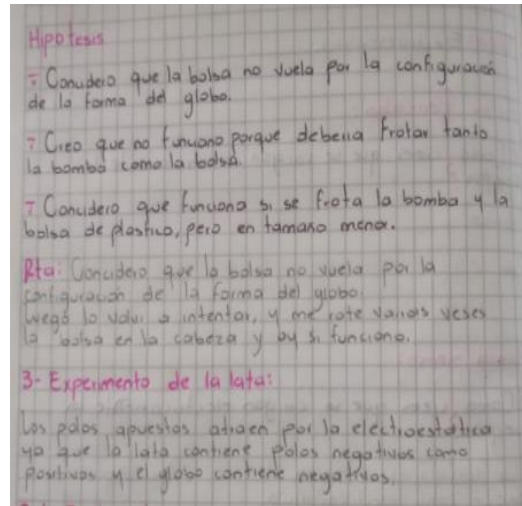 Hipotesis
- Considero que la bolsa no vuela por la configuración
de la forma del globo.
- Creo que no funciono porque deberia frotar tanto
la bomba como la bolsa.
- Considero que funciona si se frota la bomba y la
bolsa de plastico, pero en tamaño menor.
Rta: Considero que la bolsa no vuela por la
configuración de la forma del globo
luego lo volvi a intentar, y me rote varias veses
la bolsa en la cabeza y ay si funciono.
3- Experimento de la lata:
Los polos apuestos atraen por la electroestática
ya que la lata contiene polos negativos como
positivos y el globo contiene negativos.